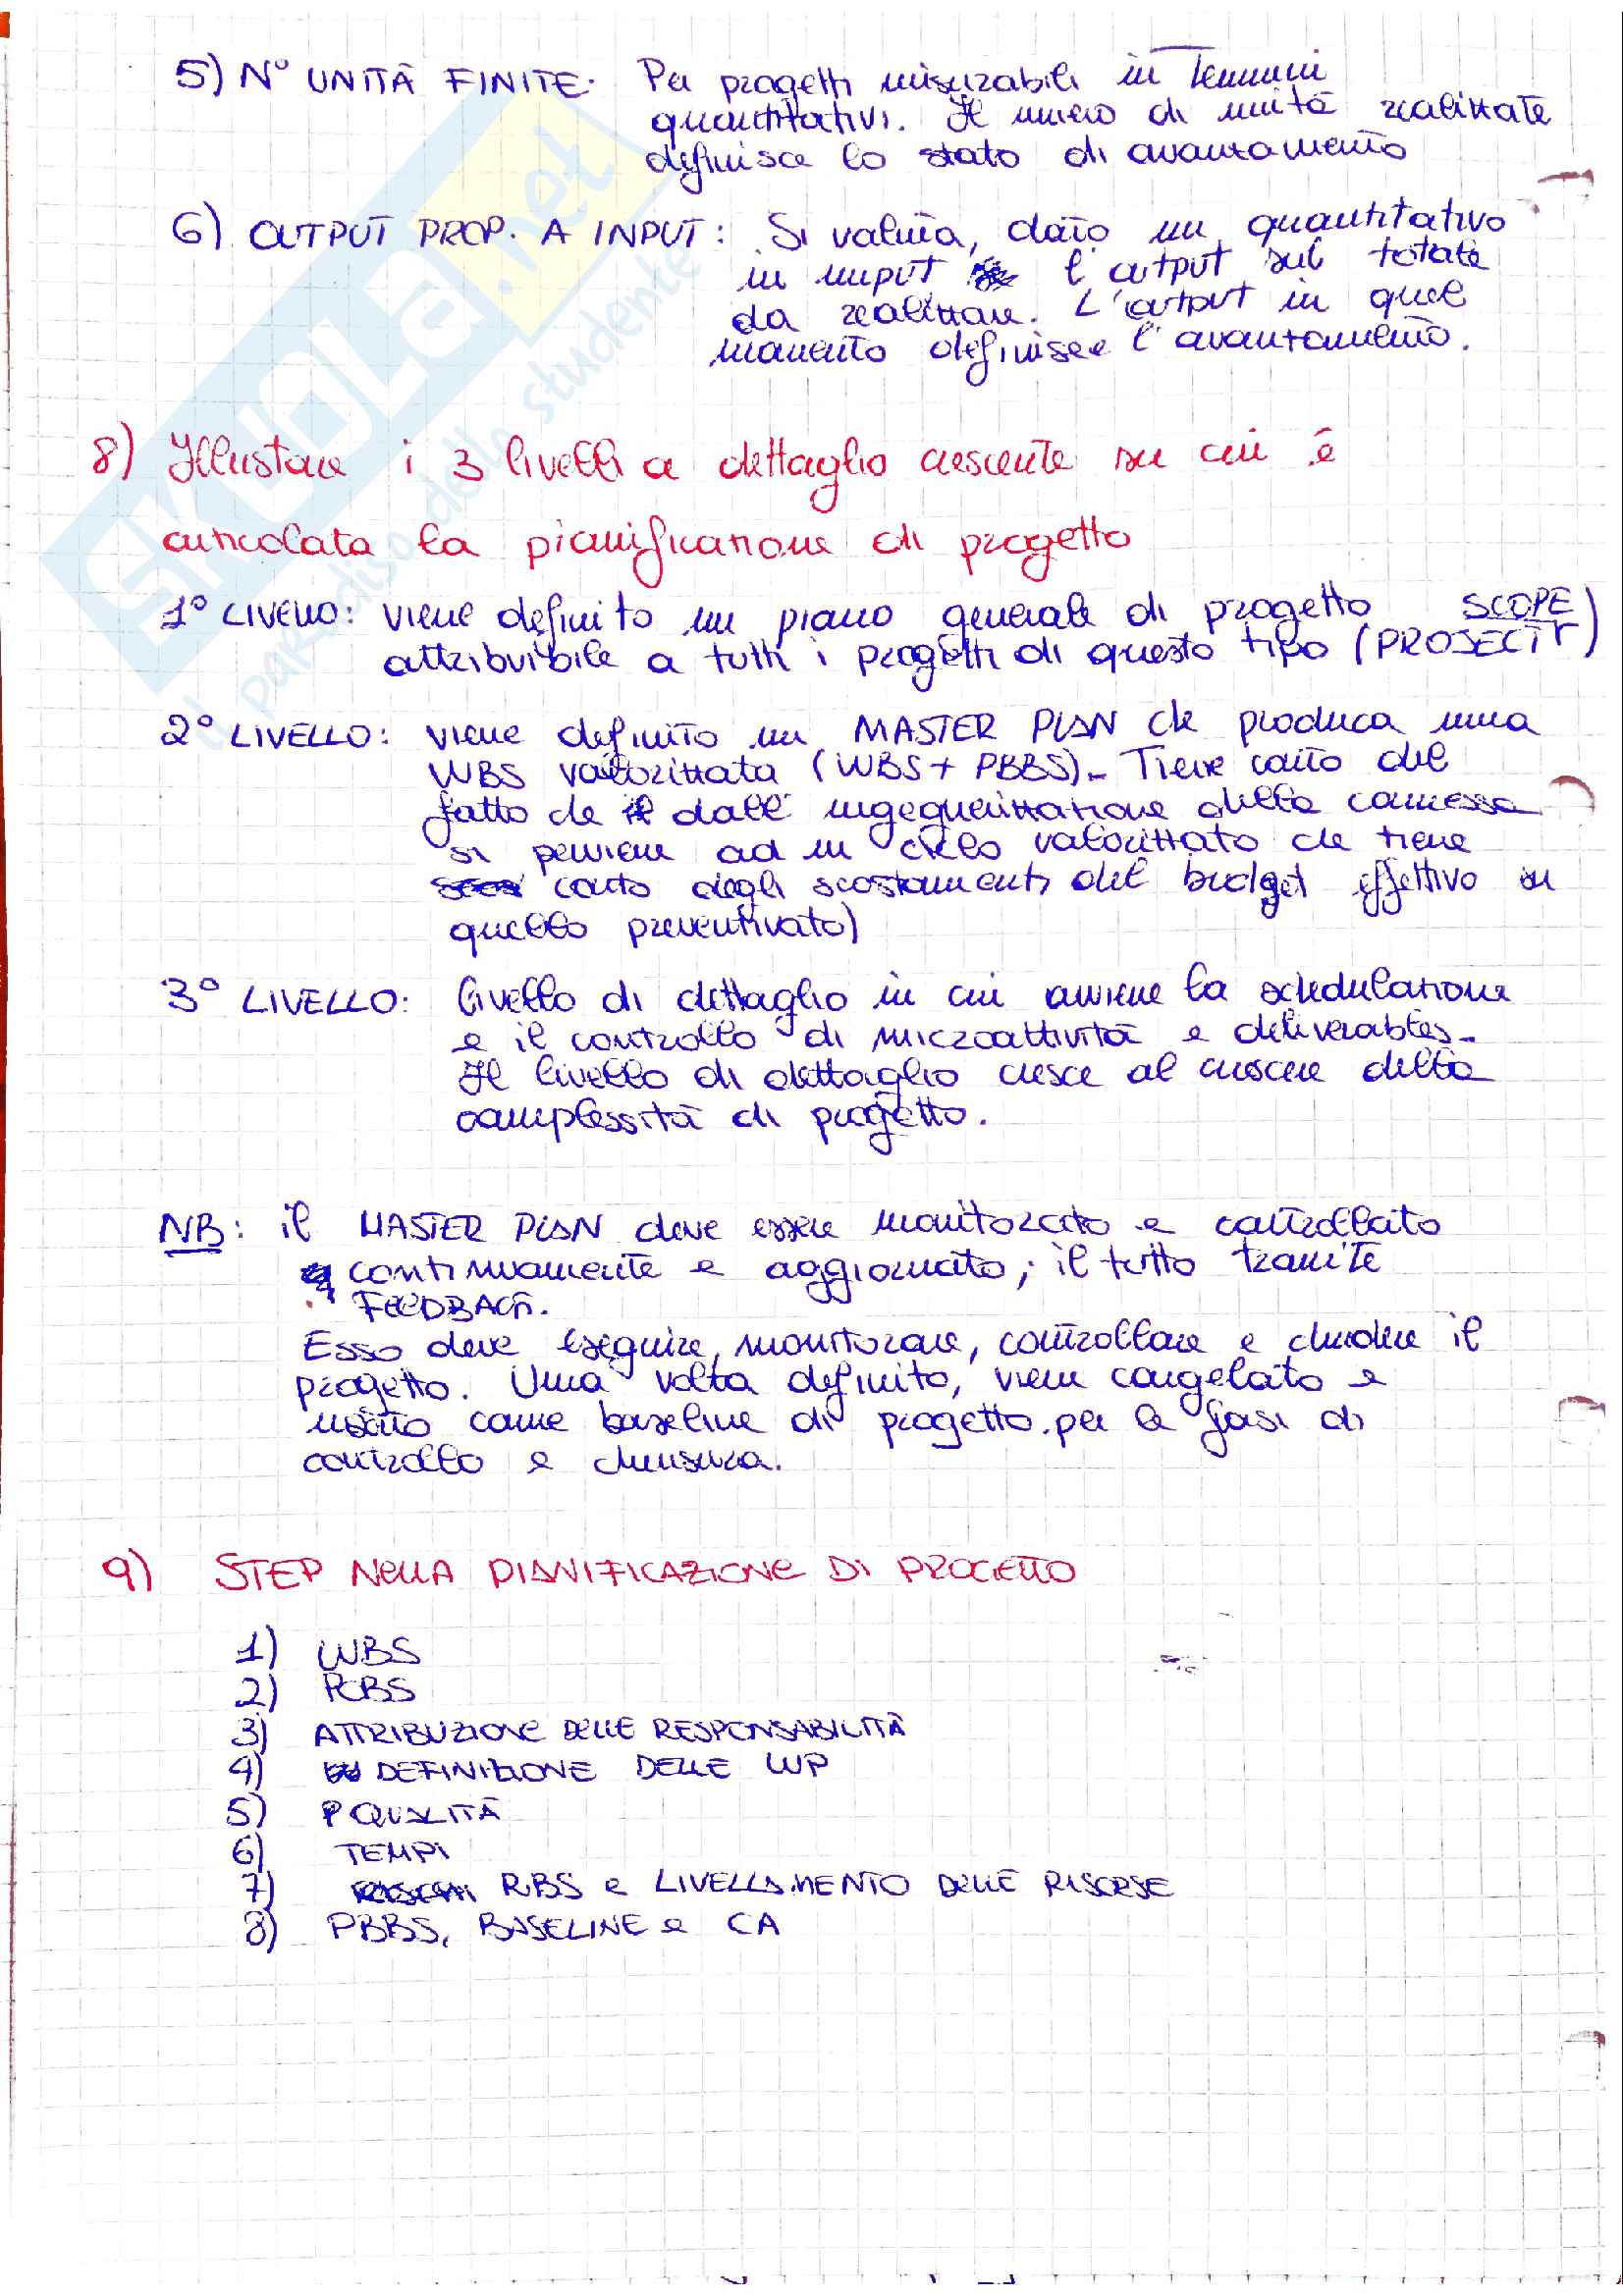 5) N° UNITÀ FINITE: Per progetti misurabili in Termini
quantitativi. Il numero di unità realizzate
definisce lo stato di avanzamento
6) OUTPUT PROP. A INPUT: Si valuta, dato un quantitativo
in imput l'output sul totale
da realizzare. L'output in quel
momento definisce l'avanzamento.
8) Illustrare i 3 livelli a dettaglio crescente su cui è
articolata la pianificazione di progetto
1° LIVELLO: viene definito un piano generale di progetto SCOPE
attribuibile a tutti i progetti di questo tipo (PROJECT)
2° LIVELLO: viene definito un MASTER PLAN che produca una
WBS valorizzata (WBS + PBBS). Tiene conto del
fatto che dall' ingegnerizzazione della commessa
si perviene ad un ciclo valorizzato che tiene
conto degli scostamenti del budget effettivo su
quello preventivato)
3° LIVELLO: livello di dettaglio in cui avviene la schedulazione
e il controllo di microattività e deliverables.
Il livello di dettaglio cresce al crescere della
complessità di progetto.
NB: il MASTER PLAN deve essere monitorato e controllato
continuamente e aggiornato; il tutto tramite
FEEDBACK.
Esso deve eseguire, monitorare, controllare e chiudere il
progetto. Una volta definito, viene congelato e
usato come baseline di progetto per le fasi di
controllo e chiusura.
9) STEP NELLA PIANIFICAZIONE DI PROGETTO
1) WBS
2) PCBS
3) ATTRIBUZIONE DELLE RESPONSABILITÀ
4) DEFINIZIONE DELLE WP
5) QUALITÀ
6) TEMPI
7) RBS e LIVELLAMENTO DELLE RISORSE
8) PBBS, BASELINE e CA
SKUOLA.net
il paradiso dello studente